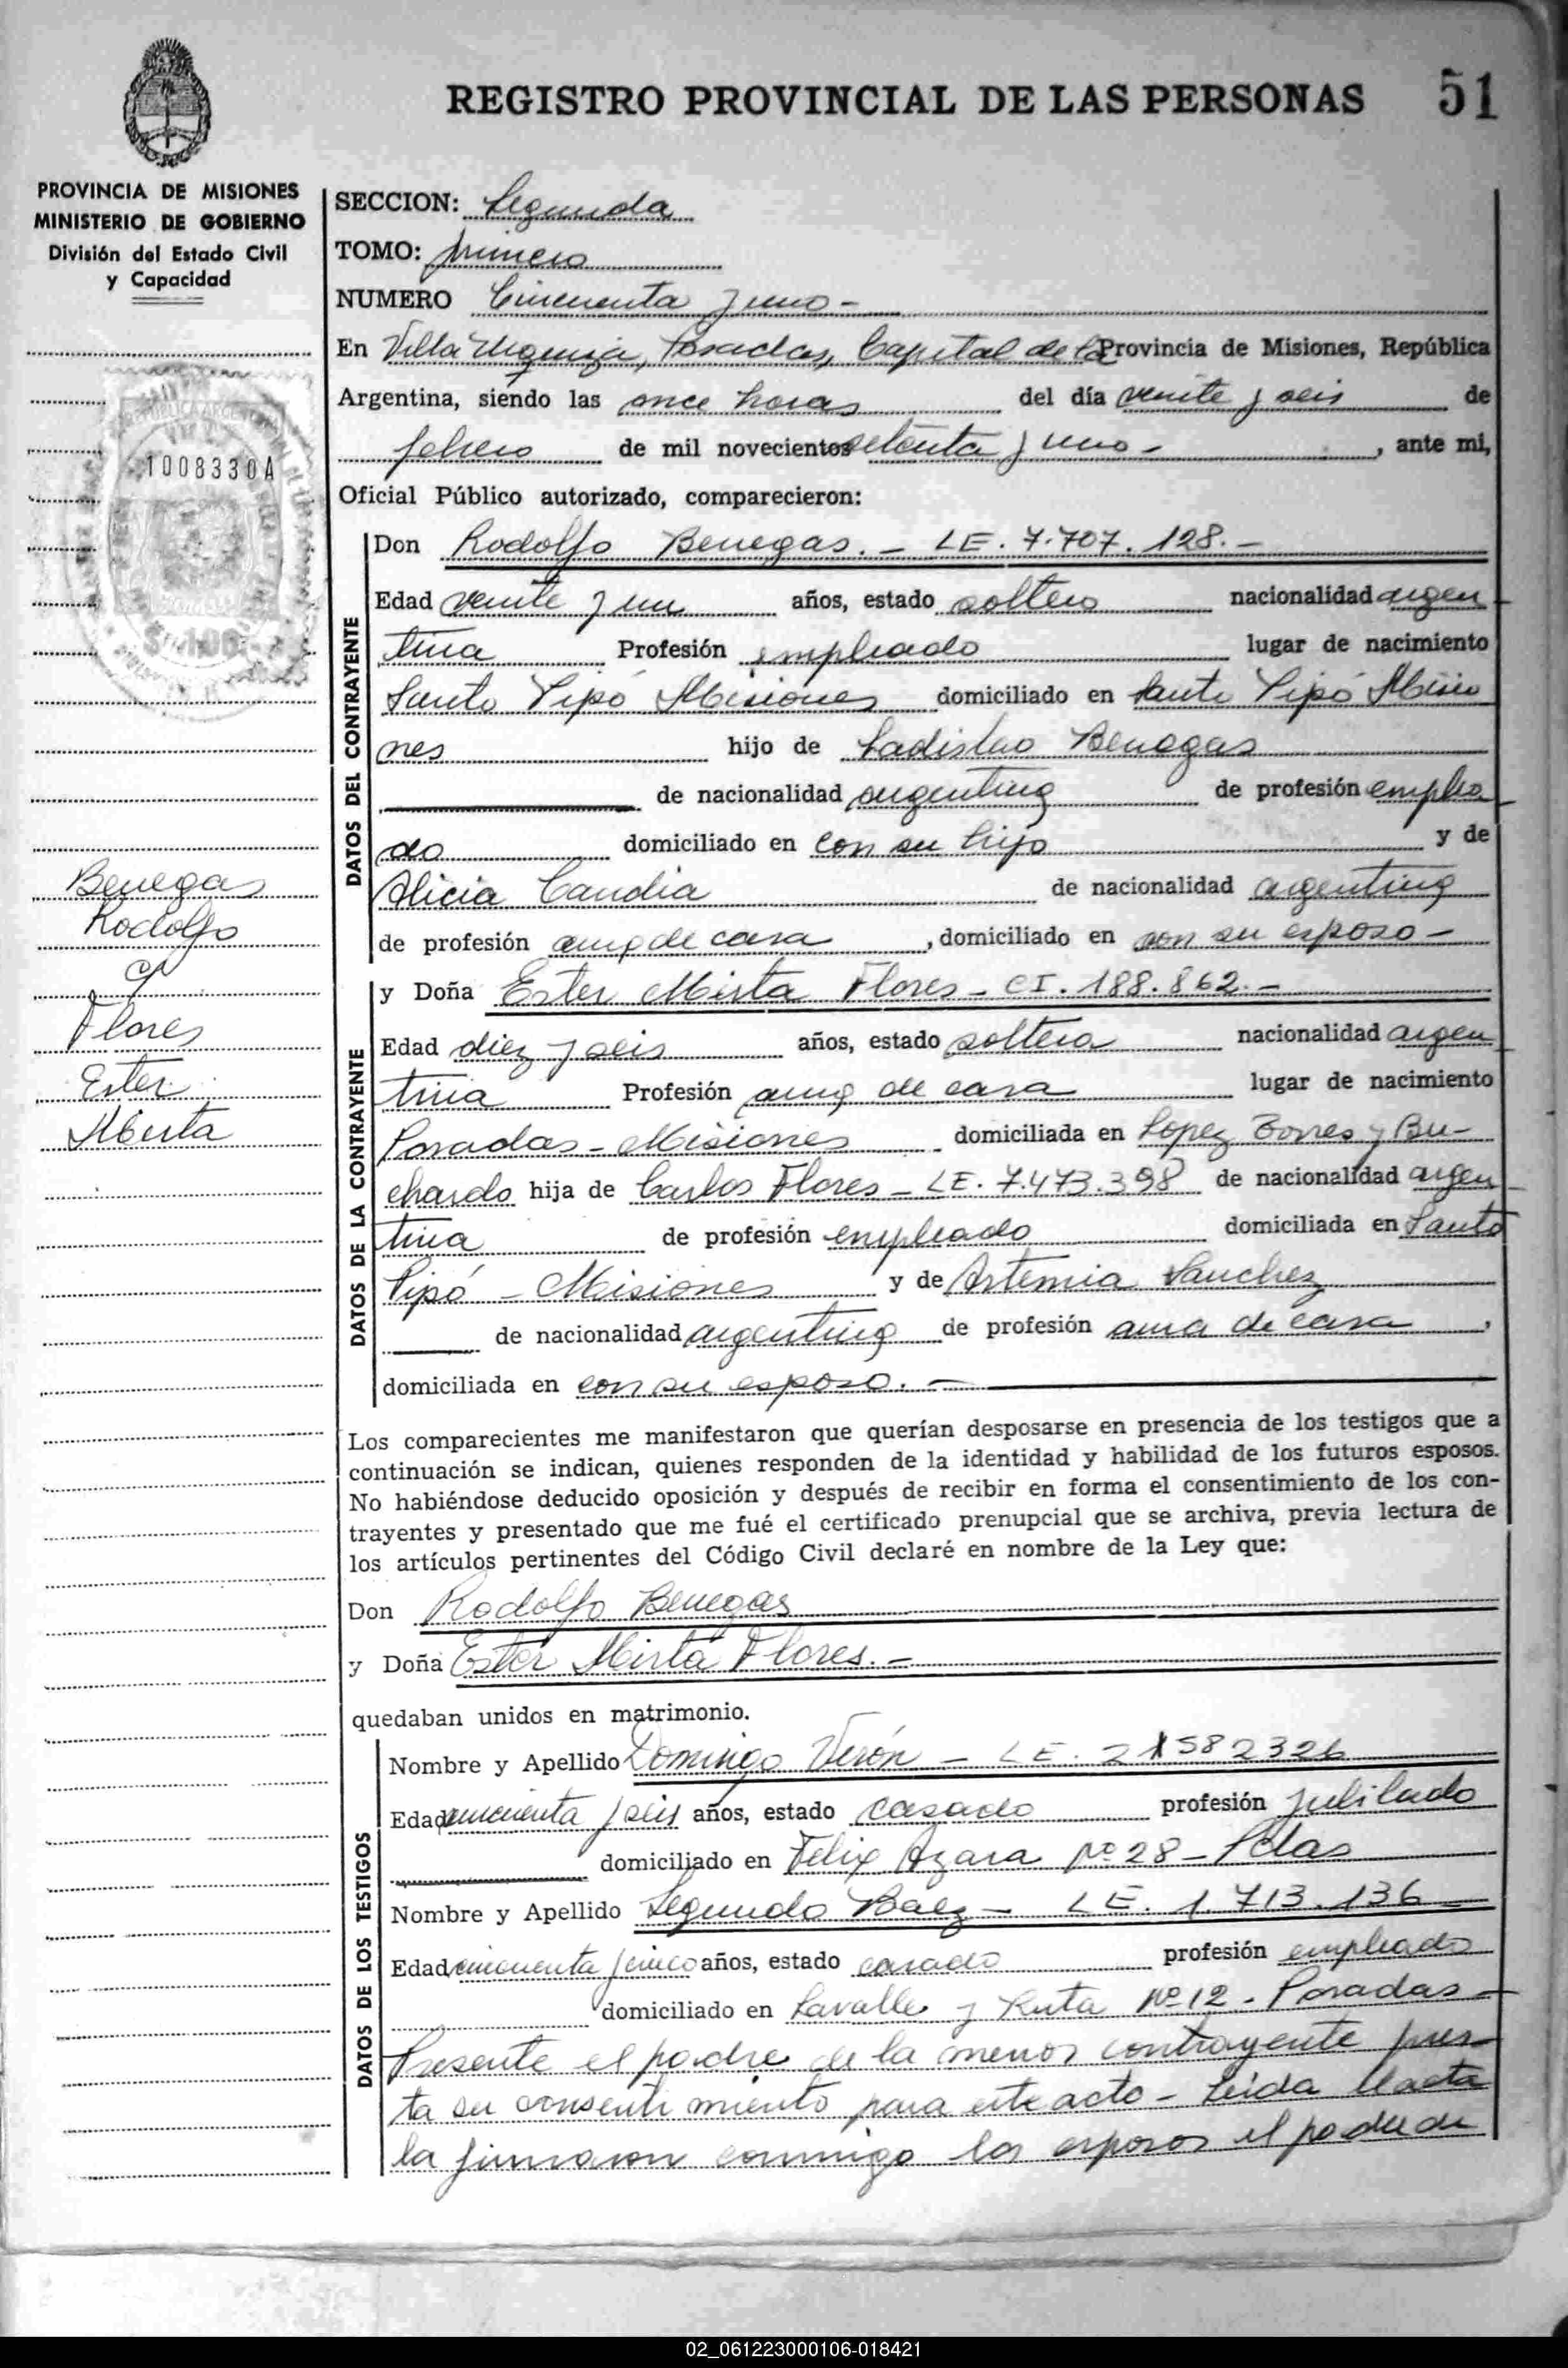 REGISTRO PROVINCIAL DE LAS PERSONAS 51
PROVINCIA DE MISIONES
MINISTERIO DE GOBIERNO
División del Estado Civil
y Capacidad
SECCION: Segunda
TOMO: primero
NUMERO Cincuenta y uno -
En Villa Urquiza, Posadas, Capital de la Provincia de Misiones, República
Argentina, siendo las once horas del día veinte y seis de
febrero de mil novecientos setenta y uno - , ante mi,
Oficial Público autorizado, comparecieron:
1008330A
DATOS DEL CONTRAYENTE
Don Rodolfo Benegas. - LE. 7.707.128. -
Edad veinte y un años, estado soltero nacionalidad argen
tina Profesión empleado lugar de nacimiento
Santo Pipó Misiones domiciliado en Santo Pipó Misio
nes hijo de Ladislao Benegas
de nacionalidad argentina de profesión emplea
do domiciliado en con su hijo y de
Alicia Candia de nacionalidad argentina
de profesión ama de casa , domiciliado en con su esposo -
Benegas
Rodolfo
c/
Flores
Ester
Mirta
DATOS DE LA CONTRAYENTE
y Doña Ester Mirta Flores - CI. 188.862. -
Edad diez y seis años, estado soltera nacionalidad argen
tina Profesión ama de casa lugar de nacimiento
Posadas - Misiones domiciliada en Lopez Torres y Bu-
chardo hija de Carlos Flores - LE. 7.473.398 de nacionalidad argen
tina de profesión empleado domiciliada en Santo
Pipó - Misiones y de Artemia Sanchez
de nacionalidad argentina de profesión ama de casa ,
domiciliada en con su esposo. -
Los comparecientes me manifestaron que querían desposarse en presencia de los testigos que a
continuación se indican, quienes responden de la identidad y habilidad de los futuros esposos.
No habiéndose deducido oposición y después de recibir en forma el consentimiento de los con-
trayentes y presentado que me fué el certificado prenupcial que se archiva, previa lectura de
los artículos pertinentes del Código Civil declaré en nombre de la Ley que:
Don Rodolfo Benegas
y Doña Ester Mirta Flores. -
quedaban unidos en matrimonio.
DATOS DE LOS TESTIGOS
Nombre y Apellido Domingo Verón - LE. 2582326
Edad cincuenta y seis años, estado casado profesión jubilado
domiciliado en Felix Azara Nº 28 - Pdas
Nombre y Apellido Segundo Baez - LE. 1.713.136
Edad cincuenta y cinco años, estado casado profesión empleado
domiciliado en Lavalle y Ruta Nº 12 - Posadas -
Presente el padre de la menor contrayente pres-
ta su consentimiento para este acto - Leida el acta
la firmaron conmigo los esposos el padre de
02_061223000106-018421